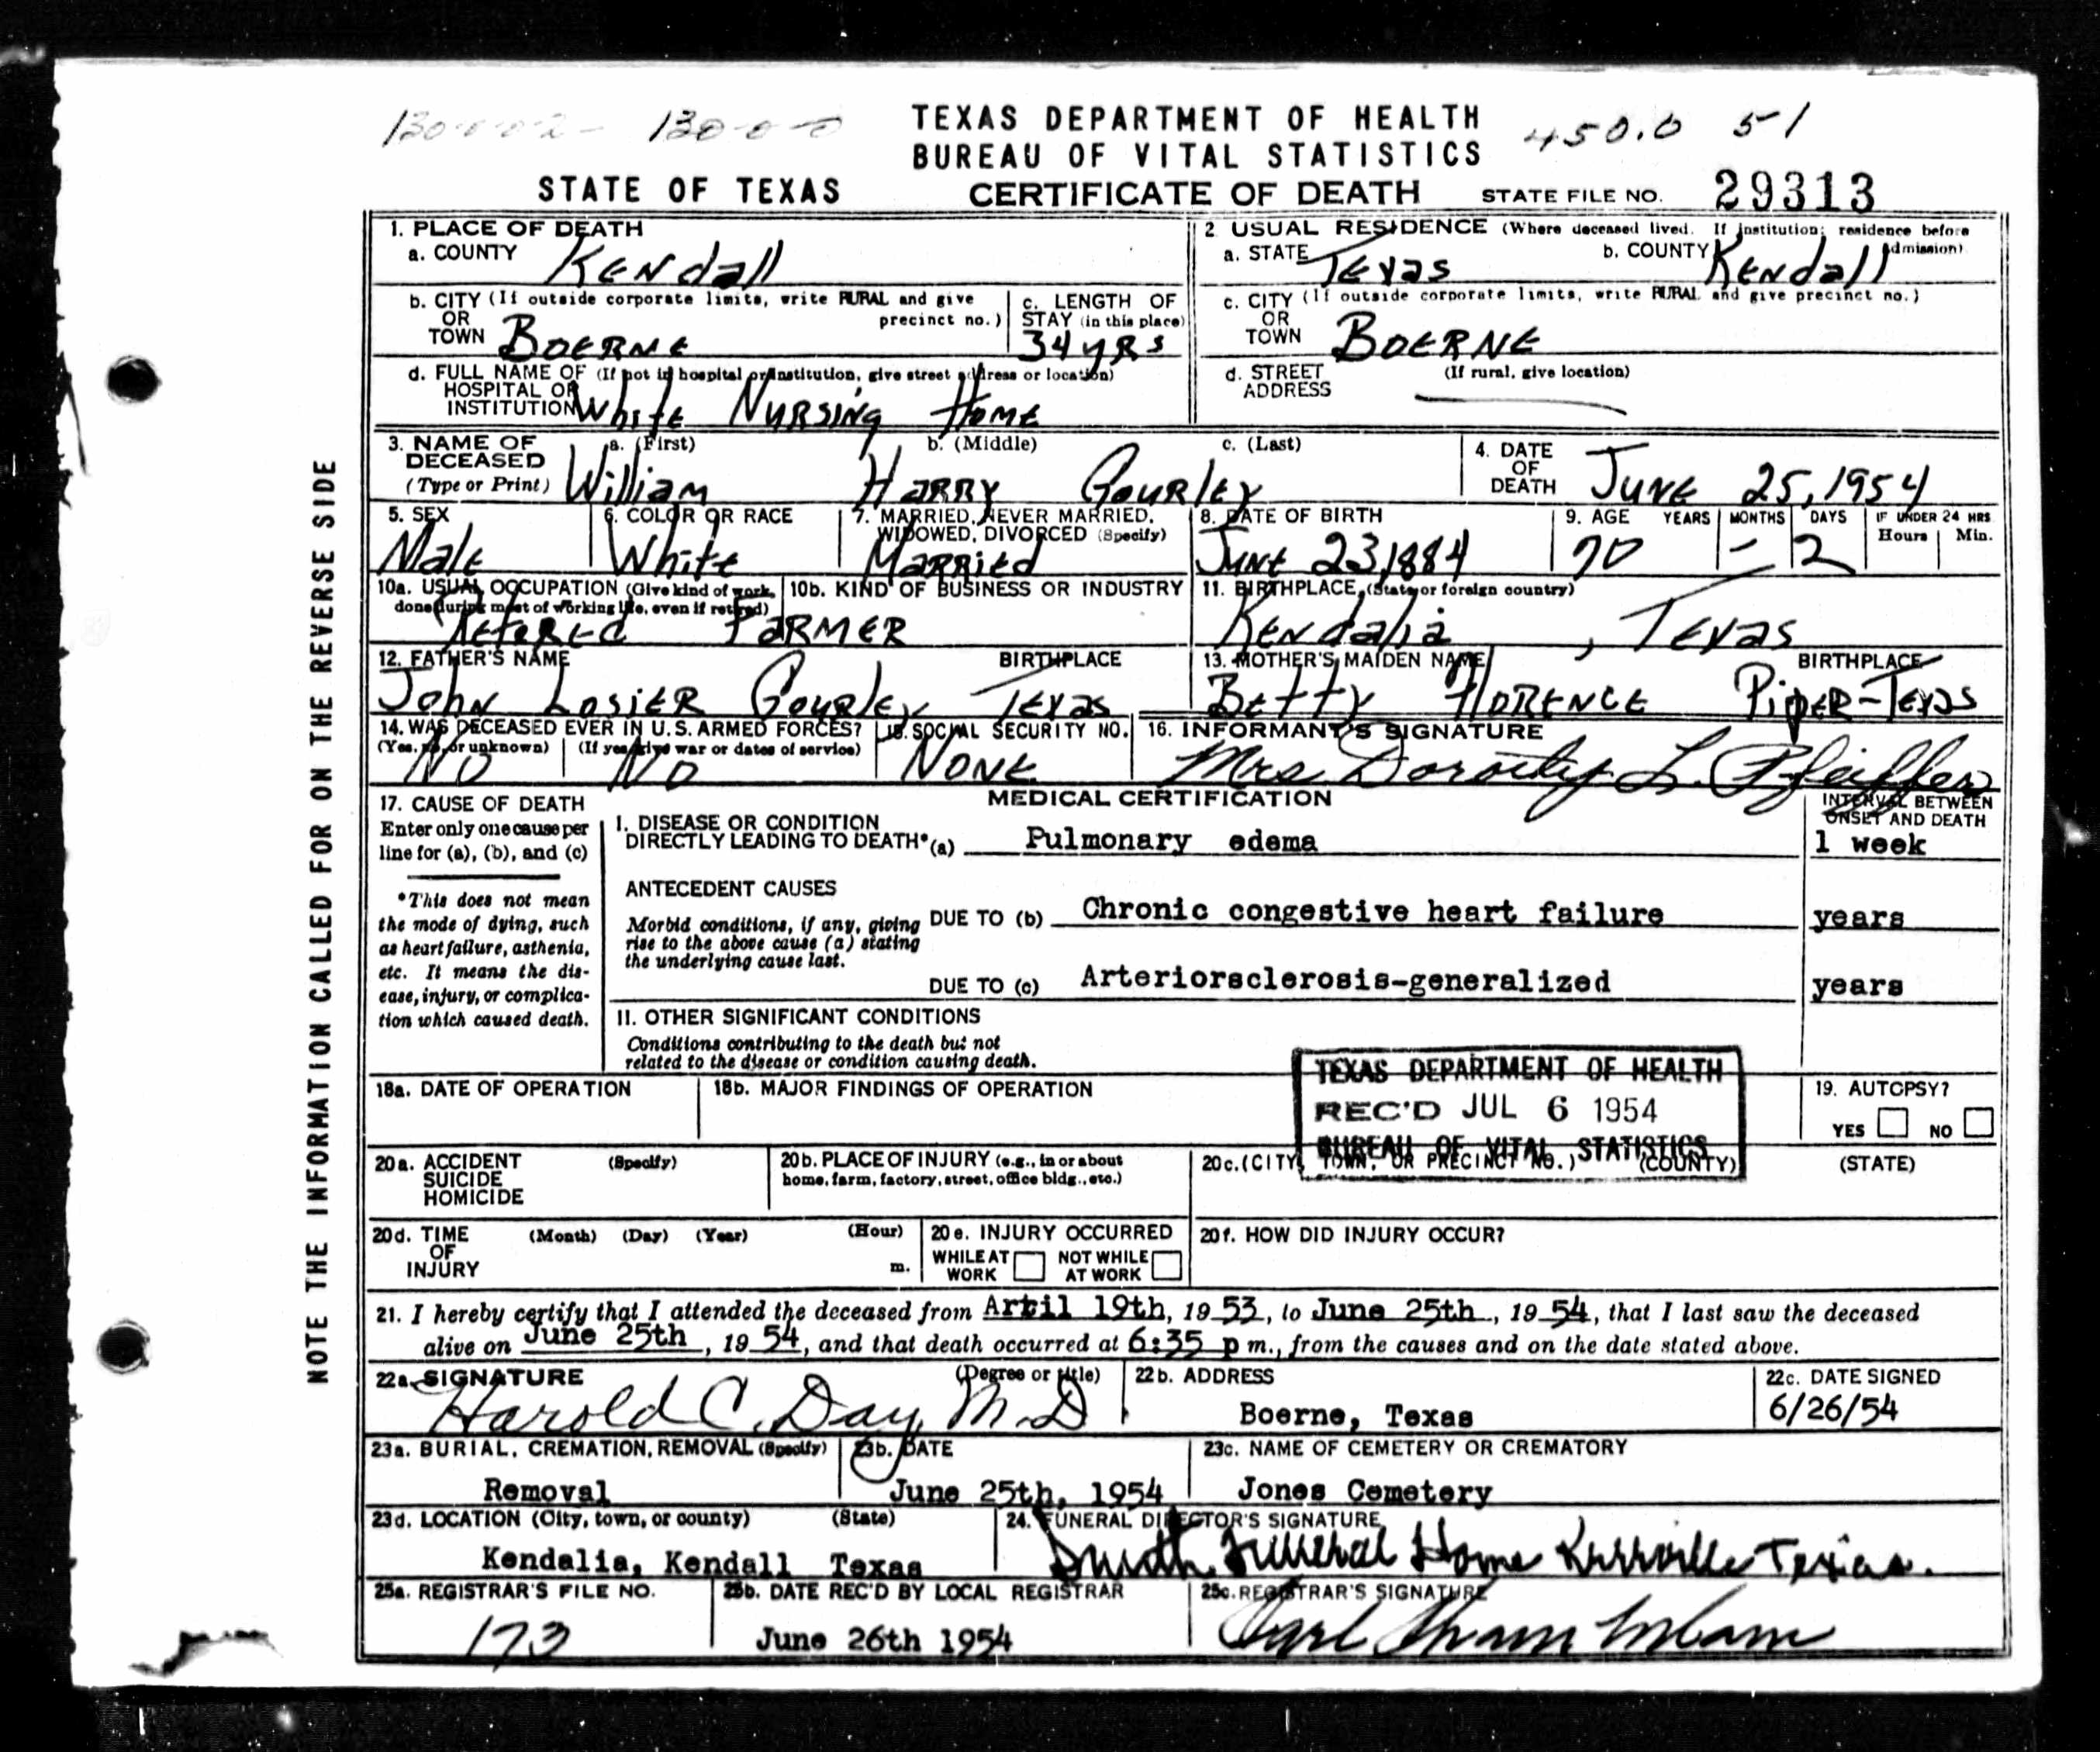 130-0-0-2- 130-0-0
TEXAS DEPARTMENT OF HEALTH
BUREAU OF VITAL STATISTICS
450.0 51
STATE OF TEXAS CERTIFICATE OF DEATH STATE FILE NO. 29313
NOTE THE INFORMATION CALLED FOR ON THE REVERSE SIDE
1. PLACE OF DEATH
a. COUNTY Kendall
2 USUAL RESIDENCE (Where deceased lived. If institution: residence before admission)
a. STATE Texas b. COUNTY Kendall
b. CITY (If outside corporate limits, write RURAL and give precinct no.)
OR
TOWN Boerne
c. LENGTH OF
STAY (in this place)
34 yrs
c. CITY (If outside corporate limits, write RURAL and give precinct no.)
OR
TOWN Boerne
d. FULL NAME OF (If not in hospital or institution, give street address or location)
HOSPITAL OR
INSTITUTION White Nursing Home
d. STREET (If rural, give location)
ADDRESS
3. NAME OF a. (First) b. (Middle) c. (Last)
DECEASED
(Type or Print) William Harry Gourley
4. DATE
OF
DEATH June 25, 1954
5. SEX
Male
6. COLOR OR RACE
White
7. MARRIED, NEVER MARRIED,
WIDOWED, DIVORCED (Specify)
Married
8. DATE OF BIRTH
June 23, 1884
9. AGE YEARS MONTHS DAYS IF UNDER 24 HRS
Hours Min.
70 - 2
10a. USUAL OCCUPATION (Give kind of work
done during most of working life, even if retired)
Retired Farmer
10b. KIND OF BUSINESS OR INDUSTRY
11. BIRTHPLACE (State or foreign country)
Kendalia, Texas
12. FATHER'S NAME BIRTHPLACE
John Losier Gourley Texas
13. MOTHER'S MAIDEN NAME BIRTHPLACE
Betty Florence Piper-Texas
14. WAS DECEASED EVER IN U.S. ARMED FORCES?
(Yes, no, or unknown) (If yes, give war or dates of service)
No No
15. SOCIAL SECURITY NO.
None
16. INFORMANT'S SIGNATURE
Mrs Dorothy L. Pfeiffer
17. CAUSE OF DEATH
Enter only one cause per
line for (a), (b), and (c)
*This does not mean
the mode of dying, such
as heart failure, asthenia,
etc. It means the dis-
ease, injury, or complica-
tion which caused death.
MEDICAL CERTIFICATION
INTERVAL BETWEEN
ONSET AND DEATH
I. DISEASE OR CONDITION
DIRECTLY LEADING TO DEATH* (a) Pulmonary edema 1 week
ANTECEDENT CAUSES
Morbid conditions, if any, giving
rise to the above cause (a) stating
the underlying cause last.
DUE TO (b) Chronic congestive heart failure years
DUE TO (c) Arteriorsclerosis-generalized years
II. OTHER SIGNIFICANT CONDITIONS
Conditions contributing to the death but not
related to the disease or condition causing death.
TEXAS DEPARTMENT OF HEALTH
REC'D JUL 6 1954
BUREAU OF VITAL STATISTICS
18a. DATE OF OPERATION
18b. MAJOR FINDINGS OF OPERATION
19. AUTOPSY?
YES NO
20a. ACCIDENT (Specify)
SUICIDE
HOMICIDE
20b. PLACE OF INJURY (e.g., in or about
home, farm, factory, street, office bldg., etc.)
20c. (CITY, TOWN, OR PRECINCT NO.) (COUNTY) (STATE)
20d. TIME (Month) (Day) (Year) (Hour)
OF
INJURY m.
20e. INJURY OCCURRED
WHILE AT WORK NOT WHILE AT WORK
20f. HOW DID INJURY OCCUR?
21. I hereby certify that I attended the deceased from Artil 19th, 19 53, to June 25th, 19 54, that I last saw the deceased
alive on June 25th, 19 54, and that death occurred at 6:35 p m., from the causes and on the date stated above.
22a. SIGNATURE (Degree or title)
Harold C. Day, M.D
22b. ADDRESS
Boerne, Texas
22c. DATE SIGNED
6/26/54
23a. BURIAL, CREMATION, REMOVAL (Specify)
Removal
23b. DATE
June 25th, 1954
23c. NAME OF CEMETERY OR CREMATORY
Jones Cemetery
23d. LOCATION (City, town, or county) (State)
Kendalia, Kendall Texas
24. FUNERAL DIRECTOR'S SIGNATURE
Smith Funeral Home Kerrville Texas.
25a. REGISTRAR'S FILE NO.
173
25b. DATE REC'D BY LOCAL REGISTRAR
June 26th 1954
25c. REGISTRAR'S SIGNATURE